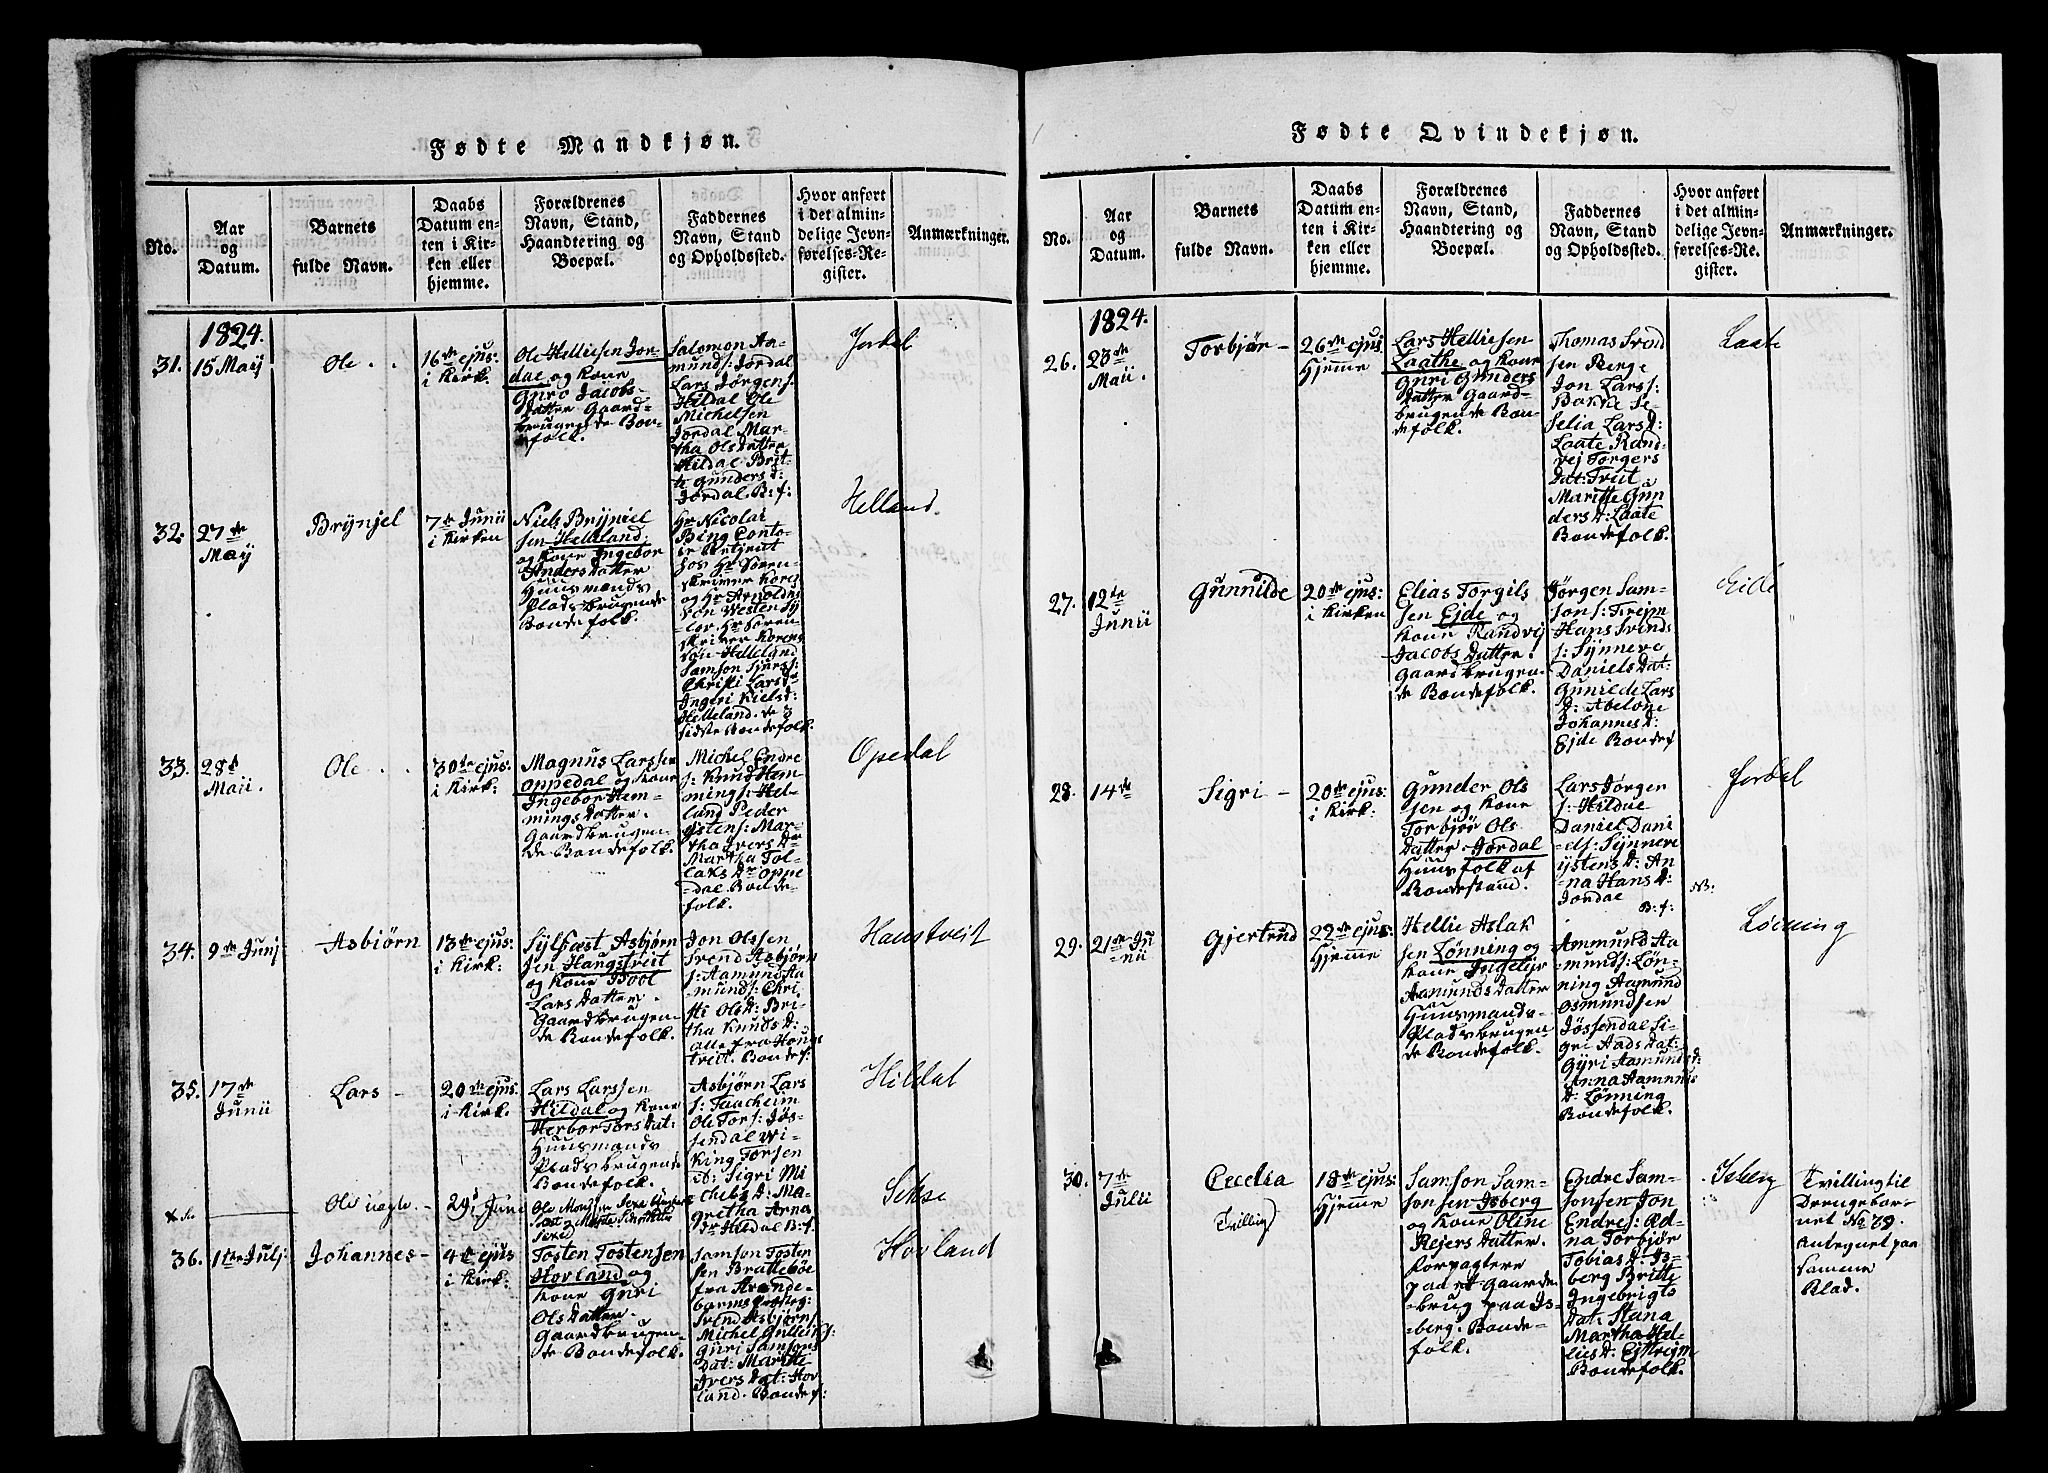 Fødte Mandkjøn.
No.
Aar
og
Datum.
Barnets
fulde Navn.
Daabs
Datum en-
ten i Kir-
ken eller
hjemme.
Forældrenes
Navn, Stand,
Haandtering og
Boepæl.
Faddernes
Navn, Stand
og Opholdssted.
Hvor anført
i det almin-
delige Jevn-
førelses-Re-
gister.
Anmærkninger.
1824.
31.
15 May
Ole
16de ejus:
i Kirk.
Ole Helliesen Jor-
dae og Kone
Guro Jacobs-
Datter Gaard-
brugende Bon-
defolk.
Salomon Aa-
munds: Jordal
Lars Jørgens:
Hildal Ole
Michelsen
Jordal Mar-
tha Ols Datter
Hildal Brit-
te Gunders d:
Jordal. B: f:
Jordal
32.
27de
May
Brÿnjel
7de Junii
i Kirken
Niels Brÿniel
sen Helleland
og Kone Ingebor
Anders Datter
Huusmands
Plads brugende
Bondefolk.
Hr Nicolai
Bing Conto-
ir Betjent
hos Hr Soren-
skriver Koren
og Hr Arnoldus
von Westen Sÿ
lor. Hr Soren-
skriver Korens
Søn Helleland
Samson Sjurs:
Christi Lars Dr
Ingeri Niels d:
Helleland. de 3
sidste Bondefolk.
Helland.
33.
28d
Maii.
Ole
30de ejus:
i Kirk:
Magnus Larssen
Oppedal og Kone
Ingebor Hem-
mings Datter.
Gaardbrugen-
de Bondefolk.
Michel Endre
s: Knud Hem-
mings: Hel-
land Peder
Østens: Mar-
tha Ivers Dr
Martha Tol-
laks Dr Oppe
dal Bonde-
folk.
Opedal
34.
9de Junj
Asbiørn
13de ejus:
i Kirk:
Sylfæst Asbjørn
sen Haugstveit
og Kone Bool
Lars Datter.
Gaardbrugen-
de Bondefolk.
Jon Olssen
Svend Asbjørn
s: Aamund Aa
munds: Chri
sti Ols D: Bri-
tha Knuds D:
alle fra Houge
tveit. Bondef:
Haustveit
35.
17de
Junii
Lars
20de ejus.
i Kirk.
Lars Larssen
Hildal og Kone
Herbor Tors Dat:
Huusmands
Plads brugende
Bondefolk.
Asbjørn Lars
s: Taacheim
Ole Tors: Jøs-
sendal Wi-
king Torsen
D: Sigri Mi
chels d: Ma-
gretha Arna
Dr Hildal B: f:
Hildal
Ole uægte.
29d Juni
Sekse
36.
1ste Julj
Johannes
4de ejus
i Kirk:
Tosten Tostensen
Hovland og
Kone Guri
Ols Datter.
Gaardbrugen-
de Bondefolk.
Samson Tosten
sen Brattebøe
fra Strande-
barms Præsteg:
Svend Asbjørns:
Michel Gulleiks:
Guri Samsons
Dat: Maritte
Ivers Dat: Hov-
land. Bonde f:
Hovland
Fødte Qvindekjøn.
No.
Aar
og
Datum.
Barnets
fulde Navn.
Daabs
Datum en-
ten i Kir-
ken eller
hjemme.
Forældrenes
Navn, Stand,
Haandtering og
Boepæl.
Faddernes
Navn, Stand
og Opholdssted.
Hvor anført
i det almin-
delige Jevn-
førelses-Re-
gister.
Anmærkninger.
1824.
26.
23de
Maii.
Torbjør
26de ejus
Hjeme
Lars Helliesen
Laathe og Kone
Guri Gunders
Datter Gaard-
brugende Bon-
defolk.
Thomas Svend
sen Berge
Jon Lars s:
Bakke Se
Selia Lars d:
Laate Rand-
vej Torgers
Dat: Treit
Maritte Gun
ders d: Laate
Bondefolk.
Laate
27.
12te
Junii
Gunnilde
20de ejus:
i Kirken
Elias Torgils
sen Ejde og
Kone Randvej
Jacobs Datter.
Gaardbrugen-
de Bondefolk.
Jørgen Sam-
sons: Frejm
Hans Svends
s: Synneve
Daniels Dat-
Gunilde Lars
D: Abelone
Johannes d:
Ejde Bondef
Eide
28.
14de
Sigri
20de ejus:
i Kirk.
Gunder Ols
sen og Kone
Torbjør Ols
Datter Jordal
Huusfolk af
Bondestand.
Lars Jørgen
s: Hildae
Daniel Dani
els: Synneve
Østens d: An-
na Hans d:
Jordae
B: f:
NB:
Jordal
29.
21de Ju
nii
Gjertrud
22de ejus.
Hjeme
Hellie Aslak
sen Lønning og
Kone Ingelijr
Aamunds Datter
Huusmands-
Plads brugen
de Bondefolk.
Ammund Aa
munds: Løn-
ning Aamund
Osmundsen
Jøssendal Si-
gri Aads Dat:
Gÿri Aamunds d:
Anna Aamunds
d: Lønning
Bondefolk.
Lønning
30.
7de
Julii
Cecelia
Tvilling)
18de ejus:
Hjeme
Samson Sam-
sonsen Isberg
og Kone Oline
Rejers Datter.
Forpagtere
paa et Gaarde-
brug paa Is-
berg. Bonde-
folk.
Endre Sam-
sonsen Jon
Endres: Ad-
na Torbjør
Tobias D: Is-
berg Britte
Ingebrigts
Dat: Stana
Martha Hel-
lies d: Ejttrejm
Bondefolk.
Isberg
Tvilling til
Drengebar-
net No 39.
Antegnet paa
samme
Blad.